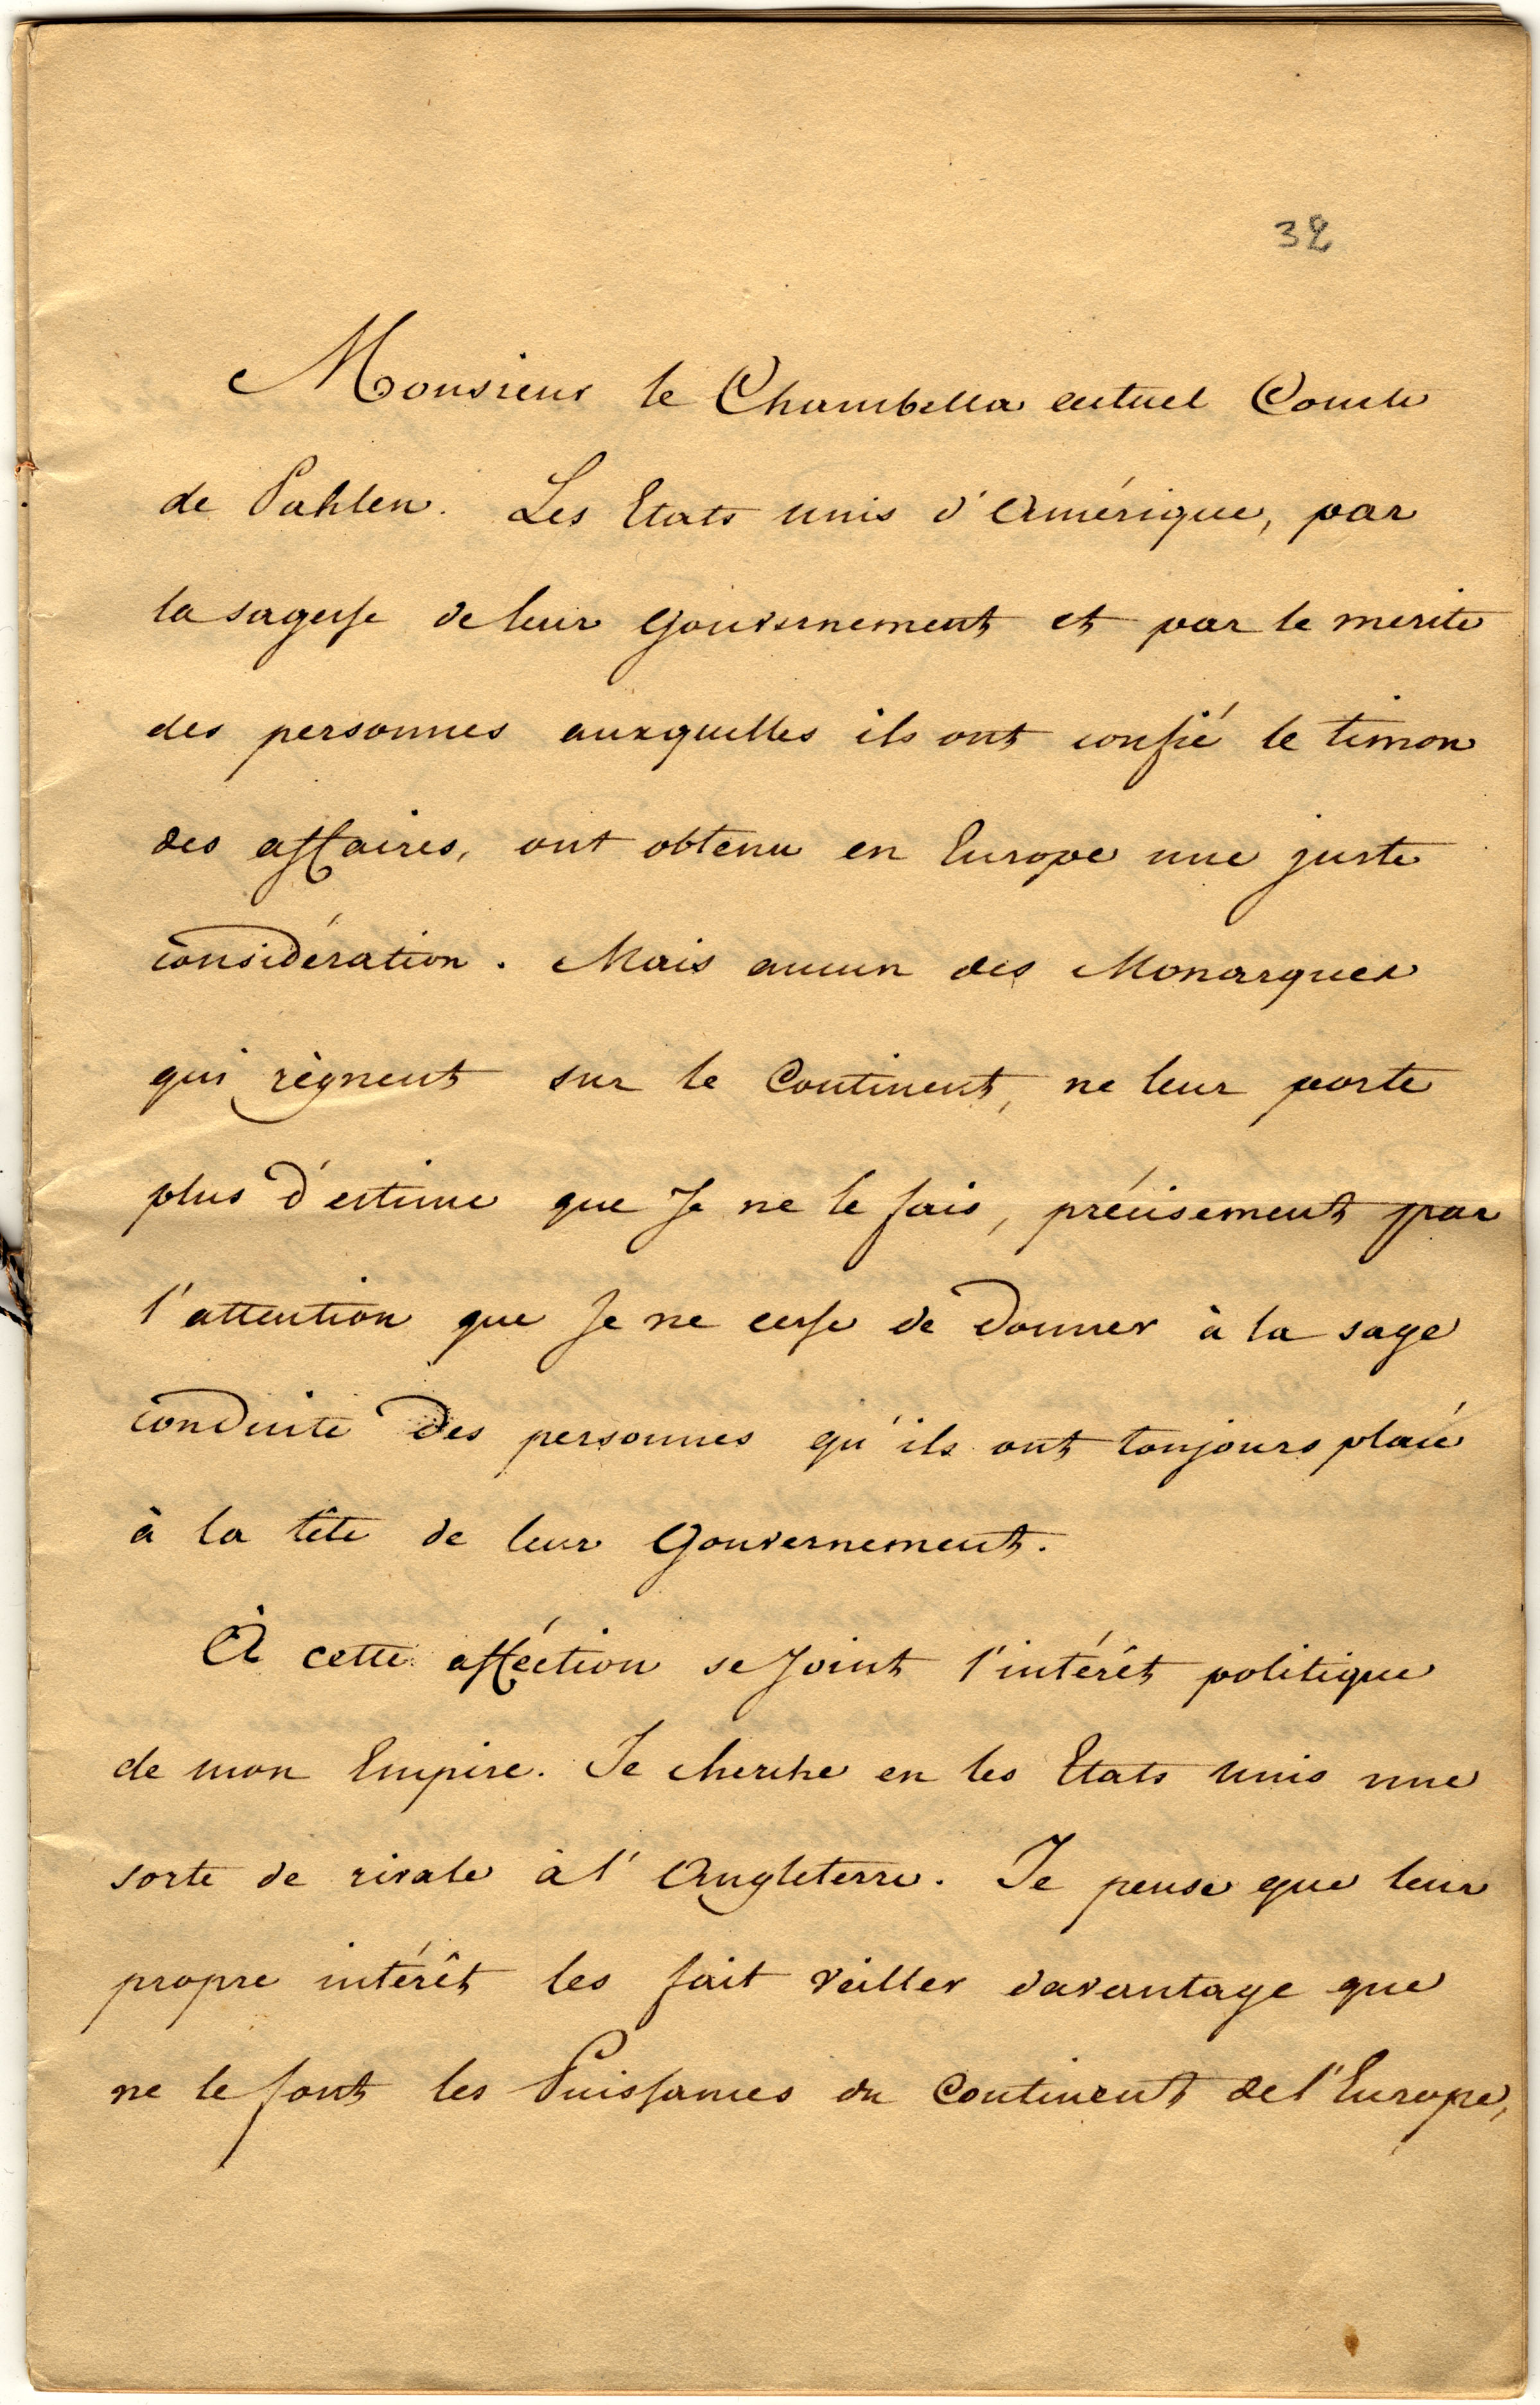 32
Monsieur le Chambella actuel Comte
de Pahlen. Les Etats unis d'Amérique, par
la sagesse de leur Gouvernement et par le merite
des personnes auxquelles ils ont confié le timon
des affaires, ont obtenu en Europe une juste
considération. Mais aucun des Monarques
qui règnent sur le Continent, ne leur porte
plus d'estime que Je ne le fais, précisement par
l'attention que Je ne cesse de donner à la sage
conduite des personnes qu'ils ont toujours placé
à la tête de leur Gouvernement.
À cette afféction se Joint l'intérét politique
de mon Empire. Je cherche en les Etats unis une
sorte de rivale à l'Angleterre. Je pense que leur
propre intérêt les fait veiller davantage que
ne le font les Puissances du Continent de l'Europe,